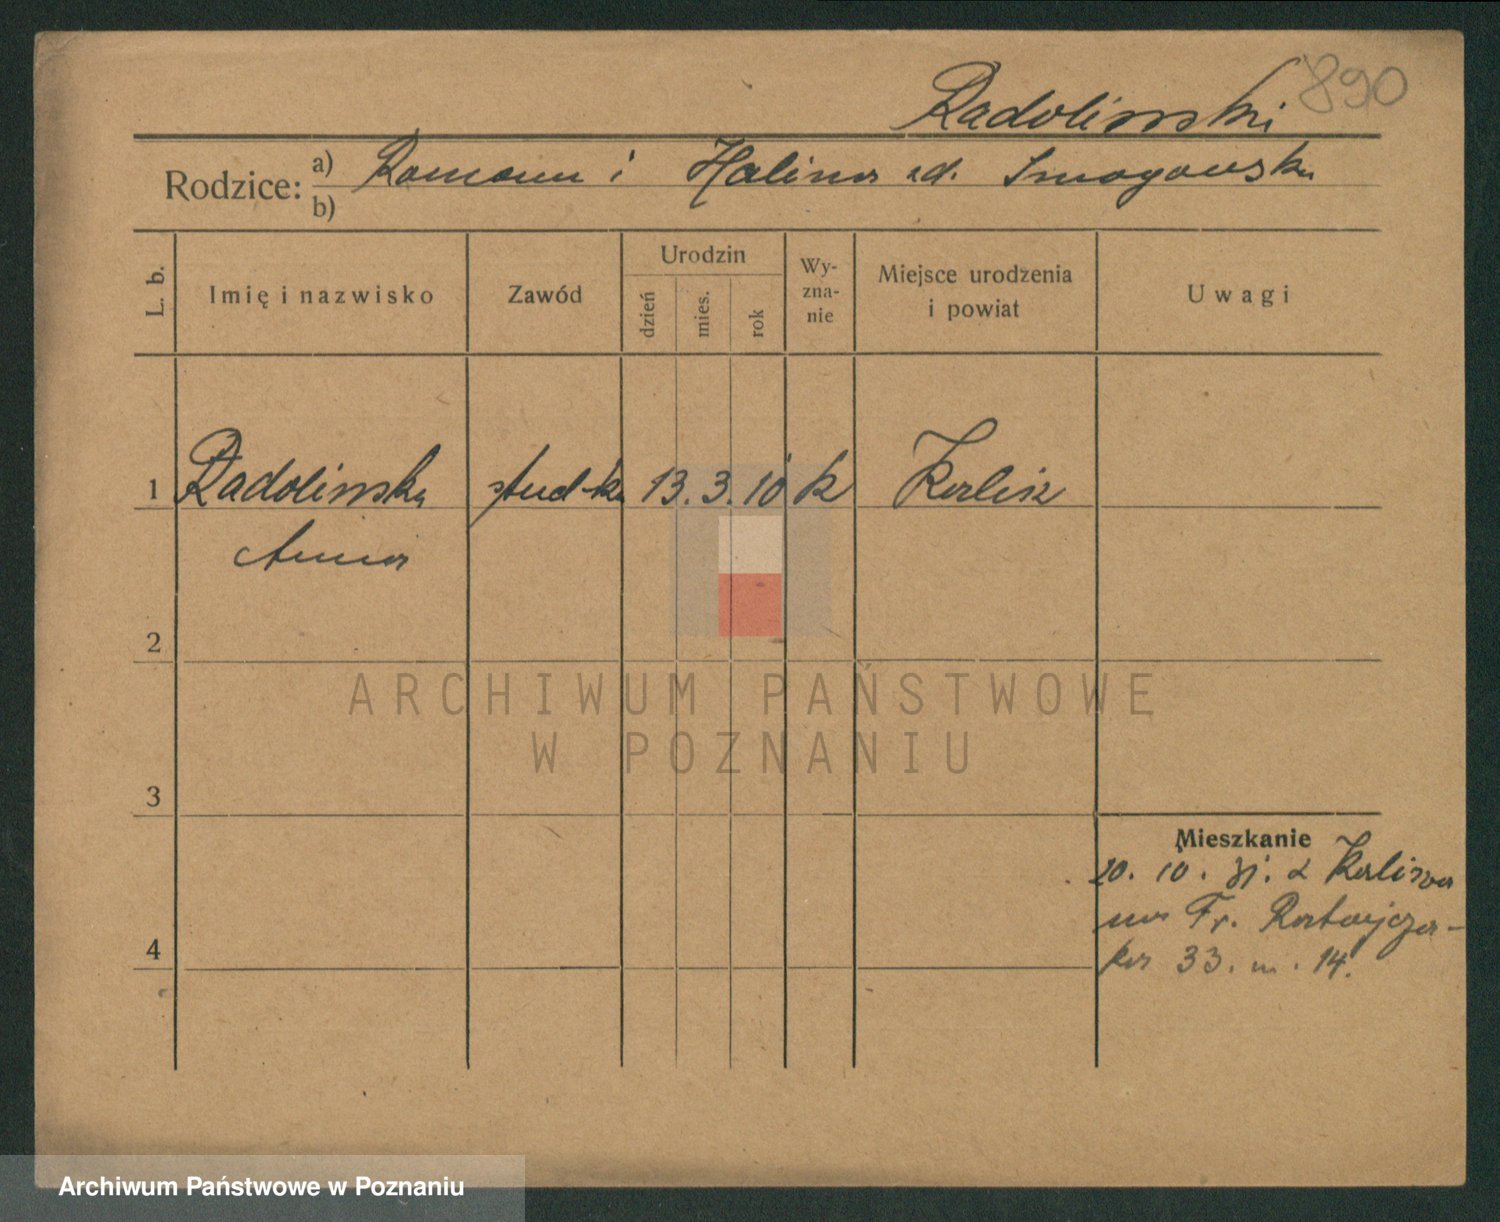 890
Radolinski
Rodzice: a) Roman i Halina zd. Smogowska
b)
L. b. Imię i nazwisko Zawód Urodzin dzień mies. rok Wy-zna-nie Miejsce urodzenia i powiat Uwagi
1 Radolinska stud-ka 13. 3. 10 k Kalisz
Anna
2
ARCHIWUM PAŃSTWOWE
W POZNANIU
3
Mieszkanie
20. 10. z Kalisza
na Fr. Ratajcza-
ka 33. m. 14.
4
Archiwum Państwowe w Poznaniu